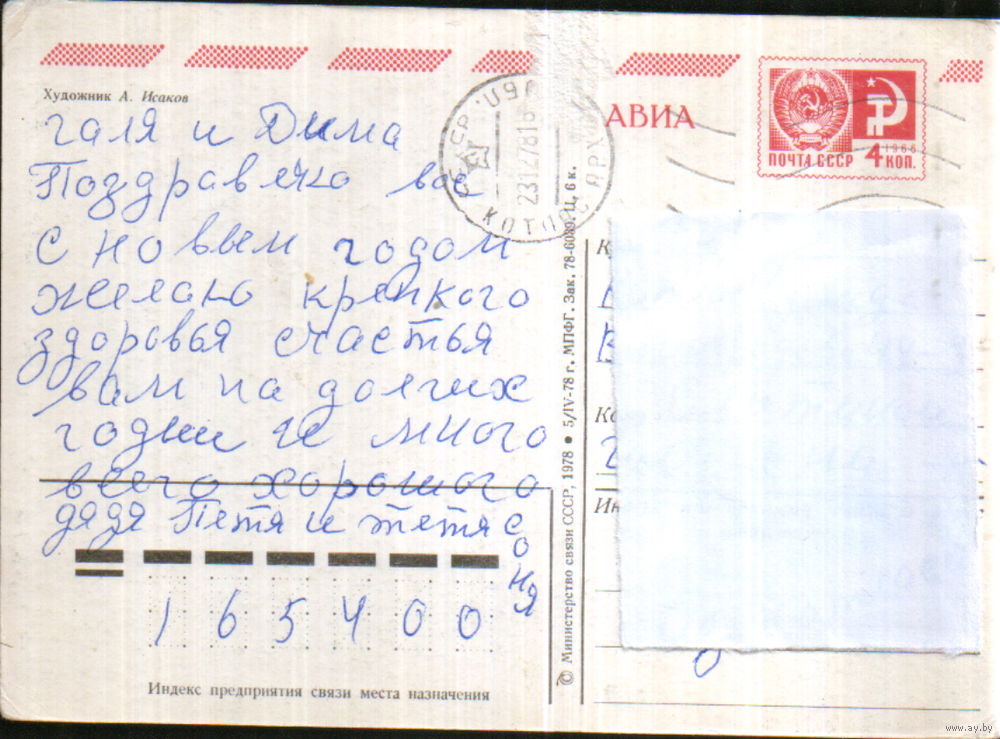 Художник А. Исаков
галя и Дима
Поздравляю вас
с новым годом
желаю крепкого
здоровья счастья
вам на долгих
годы и много
всего хорошего
дядя Петя и тетя с
о
н
я
165400
Индекс предприятия связи места назначения
© Министерство связи СССР, 1978 ● 5/IV-78 г. МПФГ. Зак. 78-6089. Ц. 6 к.
АВИА
ПОЧТА СССР
1966
4 КОП.
СССР
КОТЛАС АРХ
www.ay.by